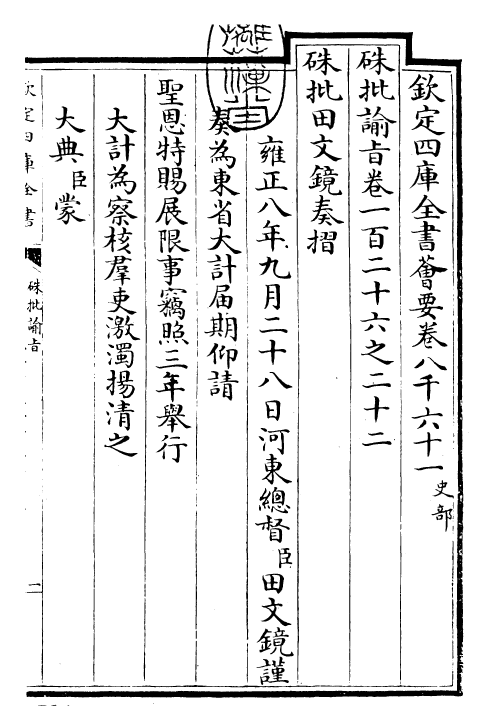 欽定四庫全書薈要卷八千六十一 史部
硃批諭旨卷一百二十六之二十二
硃批田文鏡奏摺
雍正八年九月二十八日河東總督臣田文鏡謹
奏為東省大計届期仰請
聖恩特賜展限事竊照三年舉行
大計為察核羣吏激濁揚清之
大典臣蒙
欽定四庫全書
硃批諭旨
二